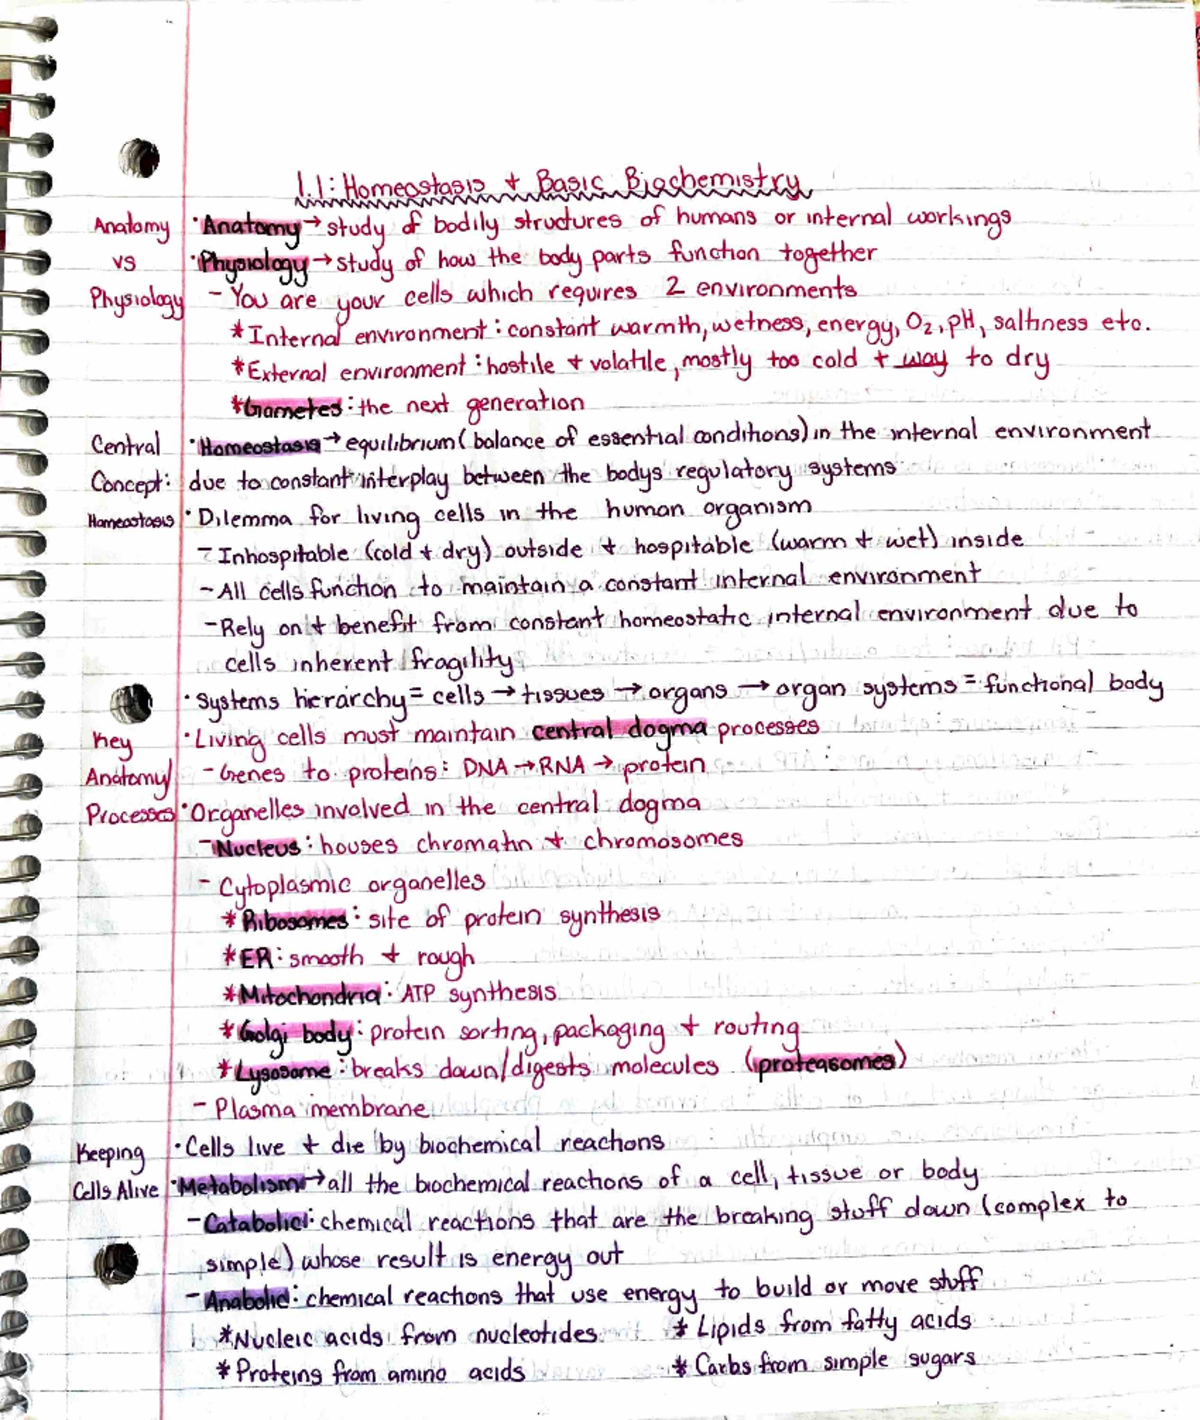 1.1: Homeostasis + Basic Biochemistry
Anatomy · Anatomy → study of bodily structures of humans or internal workings
vs · Physiology → study of how the body parts function together
Physiology - You are your cells which requires 2 environments
* Internal environment: constant warmth, wetness, energy, O2, pH, saltiness etc.
* External environment: hostile + volatile, mostly too cold + way to dry
* Gametes: the next generation
Central · Homeostasis → equilibrium (balance of essential conditions) in the internal environment
Concept: due to constant interplay between the bodys regulatory systems
Homeostasis · Dilemma for living cells in the human organism
- Inhospitable (cold + dry) outside + hospitable (warm + wet) inside
- All cells function to maintain a constant internal environment
- Rely on + benefit from constant homeostatic internal environment due to
cells inherent fragility
· Systems hierarchy = cells → tissues → organs → organ systems = functional body
Key · Living cells must maintain central dogma processes
Anatomy/ - Genes to proteins: DNA → RNA → protein
Processes · Organelles involved in the central dogma
- Nucleus: houses chromatin + chromosomes
- Cytoplasmic organelles
* Ribosomes: site of protein synthesis
* ER: smooth + rough
* Mitochondria: ATP synthesis
* Golgi body: protein sorting, packaging + routing
* Lysosome: breaks down/digests molecules (proteasomes)
- Plasma membrane
Keeping · Cells live + die by biochemical reactions
Cells Alive · Metabolism → all the biochemical reactions of a cell, tissue or body
- Catabolic: chemical reactions that are the breaking stuff down (complex to
simple) whose result is energy out
- Anabolic: chemical reactions that use energy to build or move stuff
* Nucleic acids from nucleotides * Lipids from fatty acids
* Proteins from amino acids * Carbs from simple sugars